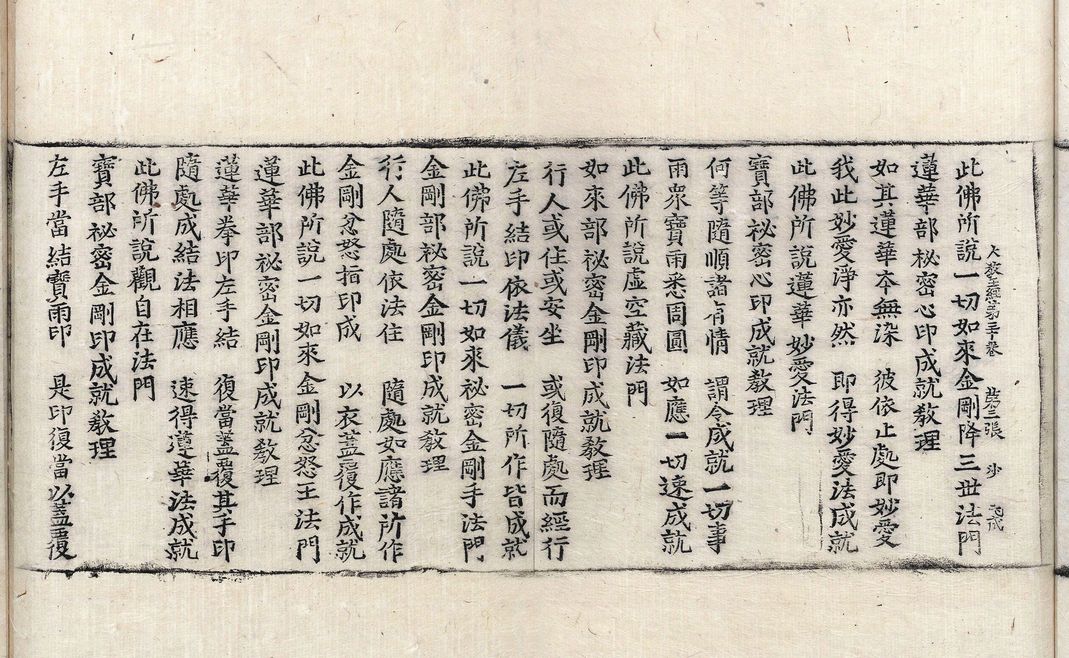 大教王經第三十卷 第三張
此佛所說一切如來金剛降三世法門
蓮華部秘密心印成就教理
如其蓮華本無染 彼依止處即妙愛
我此妙愛淨亦然 即得妙愛法成就
此佛所說蓮華妙愛法門
寶部祕密心印成就教理
何等隨順諸有情 謂令成就一切事
雨衆寶雨悉周圓 如應一切速成就
此佛所說虛空藏法門
如來部祕密金剛印成就教理
行人或住或安坐 或復隨處而經行
左手結印依法儀 一切所作皆成就
此佛所說一切如來祕密金剛手法門
金剛部祕密金剛印成就教理
行人隨處依法住 隨處如應諸所作
金剛忿怒指印成 以衣蓋覆作成就
此佛所說一切如來金剛忿怒王法門
蓮華部祕密金剛印成就教理
蓮華拳印左手結 復當蓋覆其手印
隨處成結法相應 速得蓮華法成就
此佛所說觀自在法門
寶部祕密金剛印成就教理
左手當結寶雨印 是印復當以蓋覆